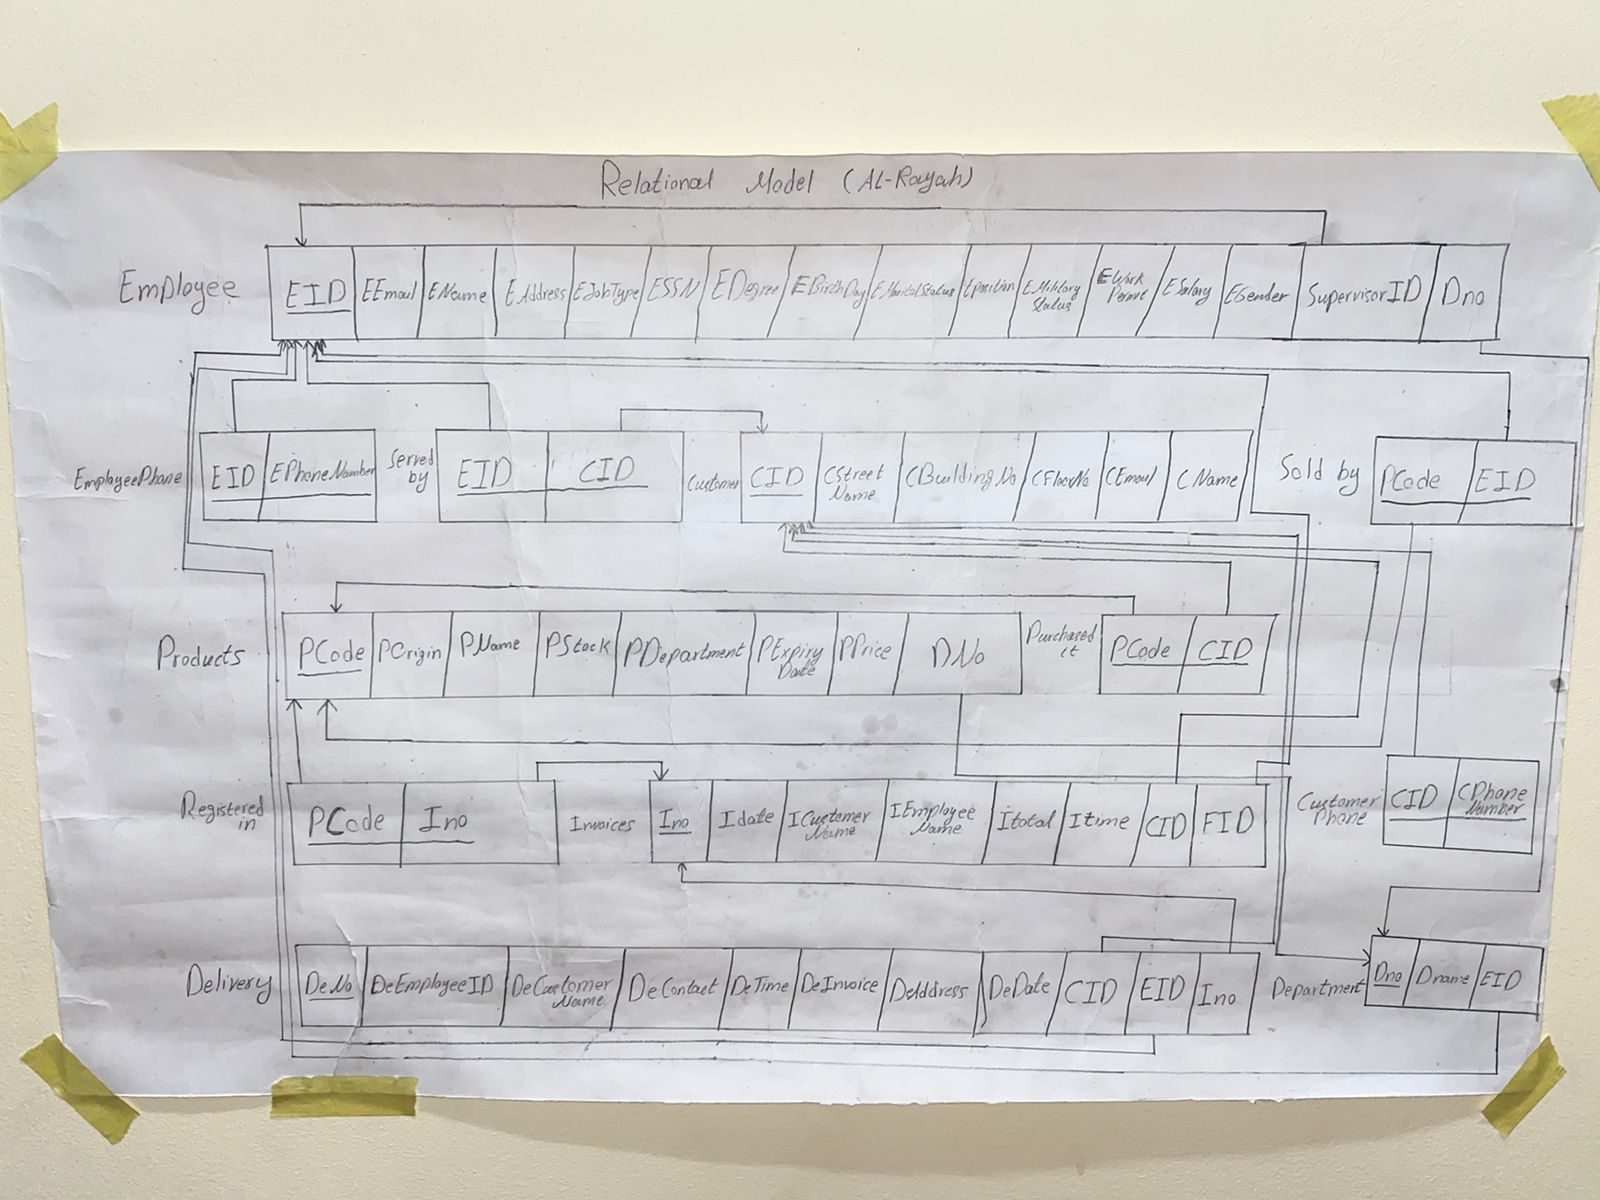 Relational Model (AL-Rayah)
Employee EID EEmail EName EAddress EJobType ESSN EDegree EBirthDay EMaritalStatus Eposition EMilitary Status EWork Permit ESalary EGender SupervisorID Dno
EmployeePhone EID EPhoneNumber
Served by EID CID
Customer CID CStreet Name CBuildingNo CFloorNo CEmail CName
Sold by PCode EID
Products PCode POrigin PName PStock PDepartment PExpiry Date PPrice DNo
Purchased it PCode CID
Registered in PCode Ino
Invoices Ino Idate ICustomer Name IEmployee Name Itotal Itime CID EID
Customer Phone CID CPhone Number
Delivery DeNo DeEmployeeID DeCustomer Name DeContact DeTime DeInvoice DeAddress DeDate CID EID Ino
Department Dno Dname EID